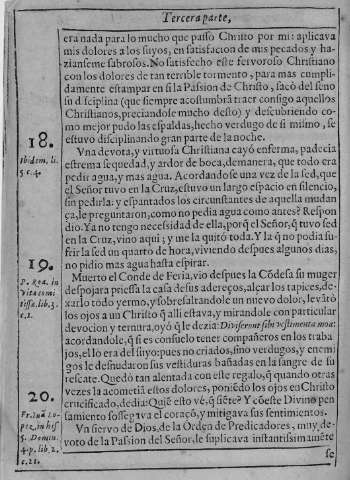 Tercera parte,
era nada para lo mucho que passo Christo por mi: aplicava
mis dolores a los suyos, en satisfacion de mis pecados, y ha-
zianseme sabrosos. No satisfecho este fervoroso Christiano
con los dolores de tan terrible tormento, para mas cumpli-
damente estampar en si la Passion de Christo, sacò del seno
su disciplina (que siempre acostumbrã traer consigo aquellos
Christianos, preciandose mucho desto) y descubriendo co-
mo mejor pudo las espaldas, hecho verdugo de si mismo, se
estuvo disciplinando gran parte de la noche.
18. Vna devota, y virtuosa Christiana cayó enferma, padecia
Ibidem. li. estrema sequedad, y ardor de boca, demanera, que todo era
5 c. 4. pedir agua, y mas agua. Acordandose una vez de la sed, que
el Señor tuvo en la Cruz, estuvo un largo espacio en silencio,
sin pedirla: y espantados los circunstantes de aquella mudan
ça, le preguntaron, como no pedia agua como antes? Respon
dio. Ya no tengo necessidad de ella, porq̃ el Señor, q̃ tuvo sed
en la Cruz, vino aqui; y me la quitó toda. Y la q̃ no podia su-
frir la sed un quarto de hora, viviendo despues algunos dias,
no pidio mas agua hasta espirar.
19. Muerto el Conde de Feria, vio despues la Cõdesa su muger
P. Roa. in despojar a priessa la casa de sus adereços, alçar los tapices, de-
vita comi xarlo todo yermo, y sobresaltandole un nuevo dolor, levãtó
tissa. lib. 3. los ojos a un Christo q̃ alli estava, y mirandole con particular
c. 1. devocion y ternura, oyó q̃ le dezia: Diviserunt sibi vestimenta mea:
acordandole, q̃ si es consuelo tener compañeros en los traba
jos, el lo era del suyo: pues no criados, sino verdugos, y enemi-
gos le desnudaron sus vestiduras bañadas en la sangre de su
rescate. Quedò tan alentada con este regalo, q̃ quando otras
vezes la acometiã estos dolores, poniẽdo los ojos en Christo
20. crucificado, dezia: Quiẽ esto vé, q̃ siẽte? Y cõ este Divino pen
Fr. Iuã Lo- samiento sossegava el coraçõ, y mitigava sus sentimientos.
pez, in his Vn siervo de Dios, de la Ordẽn de Predicadores, muy de-
5. Domin. voto de la Passion del Señor, le suplicava instantissimamẽte
4. p. lib. 2. se
c. 21.